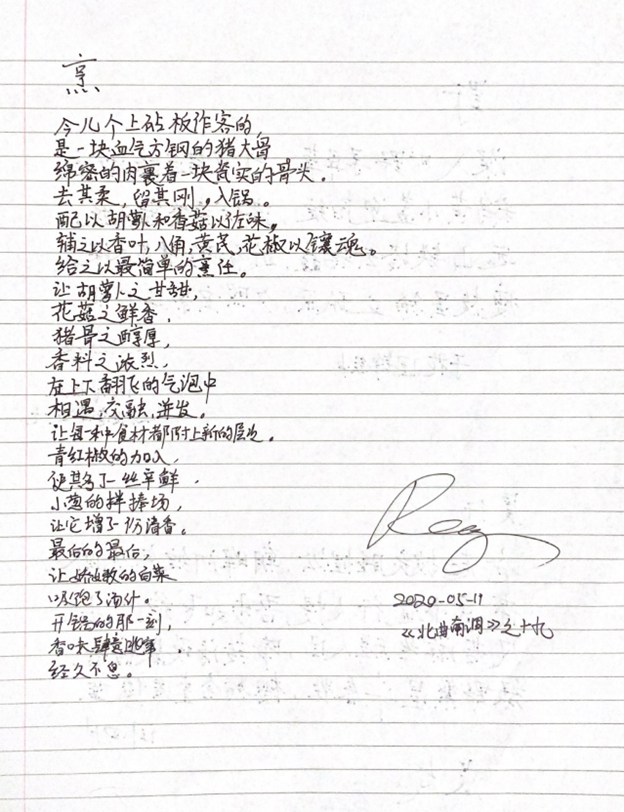 烹
今儿个上砧板作客的,
是一块血气方钢的猪大骨
绵密的肉裹着一块瓷实的骨头.
去其柔,留其刚,入锅。
配以胡萝卜和香菇以佐味,
辅之以香叶,八角,黄芪,花椒以镶魂。
给之以最简单的烹饪.
让胡萝卜之甘甜,
花菇之鲜香,
猪骨之醇厚,
香料之浓烈,
在上下翻飞的气泡中
相遇,交融,迸发。
让每一种食材都附上新的层次.
青红椒的加入,
使其多了一丝辛鲜.
小葱的拌捧场,
让它增了一份清香。
最后的最后,
让娇嫩的白菜
吸饱了汤汁.
开锅的那一刻,
香味肆意逃窜.
经久不息。
2020-05-11
《北曲南调》之十九